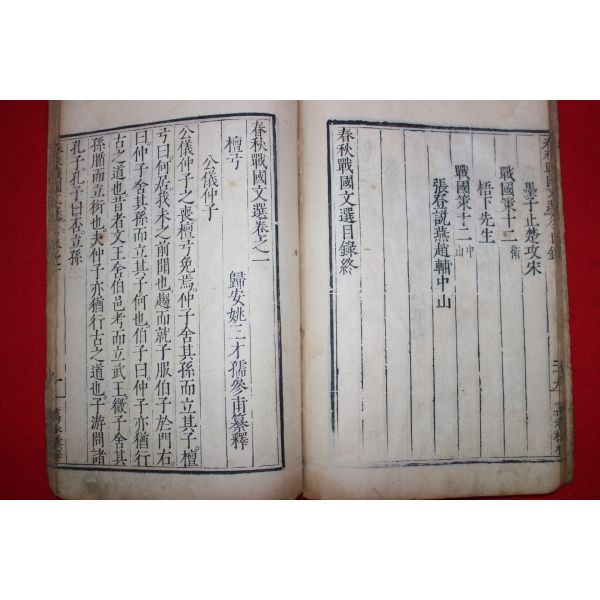 墨子止楚攻宋
戰國策十一衛
梧下先生
戰國策十二中山
張登說燕趙輔中山
春秋戰國文選目錄終
春秋戰國文選卷之一
歸安姚三才孺參甫纂釋
檀弓
公儀仲子
公儀仲子之喪檀弓免焉。仲子舍其孫而立其子。檀
弓曰。何居。我未之前聞也。趨而就子服伯子於門右。
曰。仲子舍其孫而立其子。何也。伯子曰。仲子亦猶行
古之道也。昔者文王舍伯邑考而立武王。微子舍其
孫腯而立衍也。夫仲子亦猶行古之道也。子游問諸
孔子。孔子曰。否。立孫
春秋戰國文選